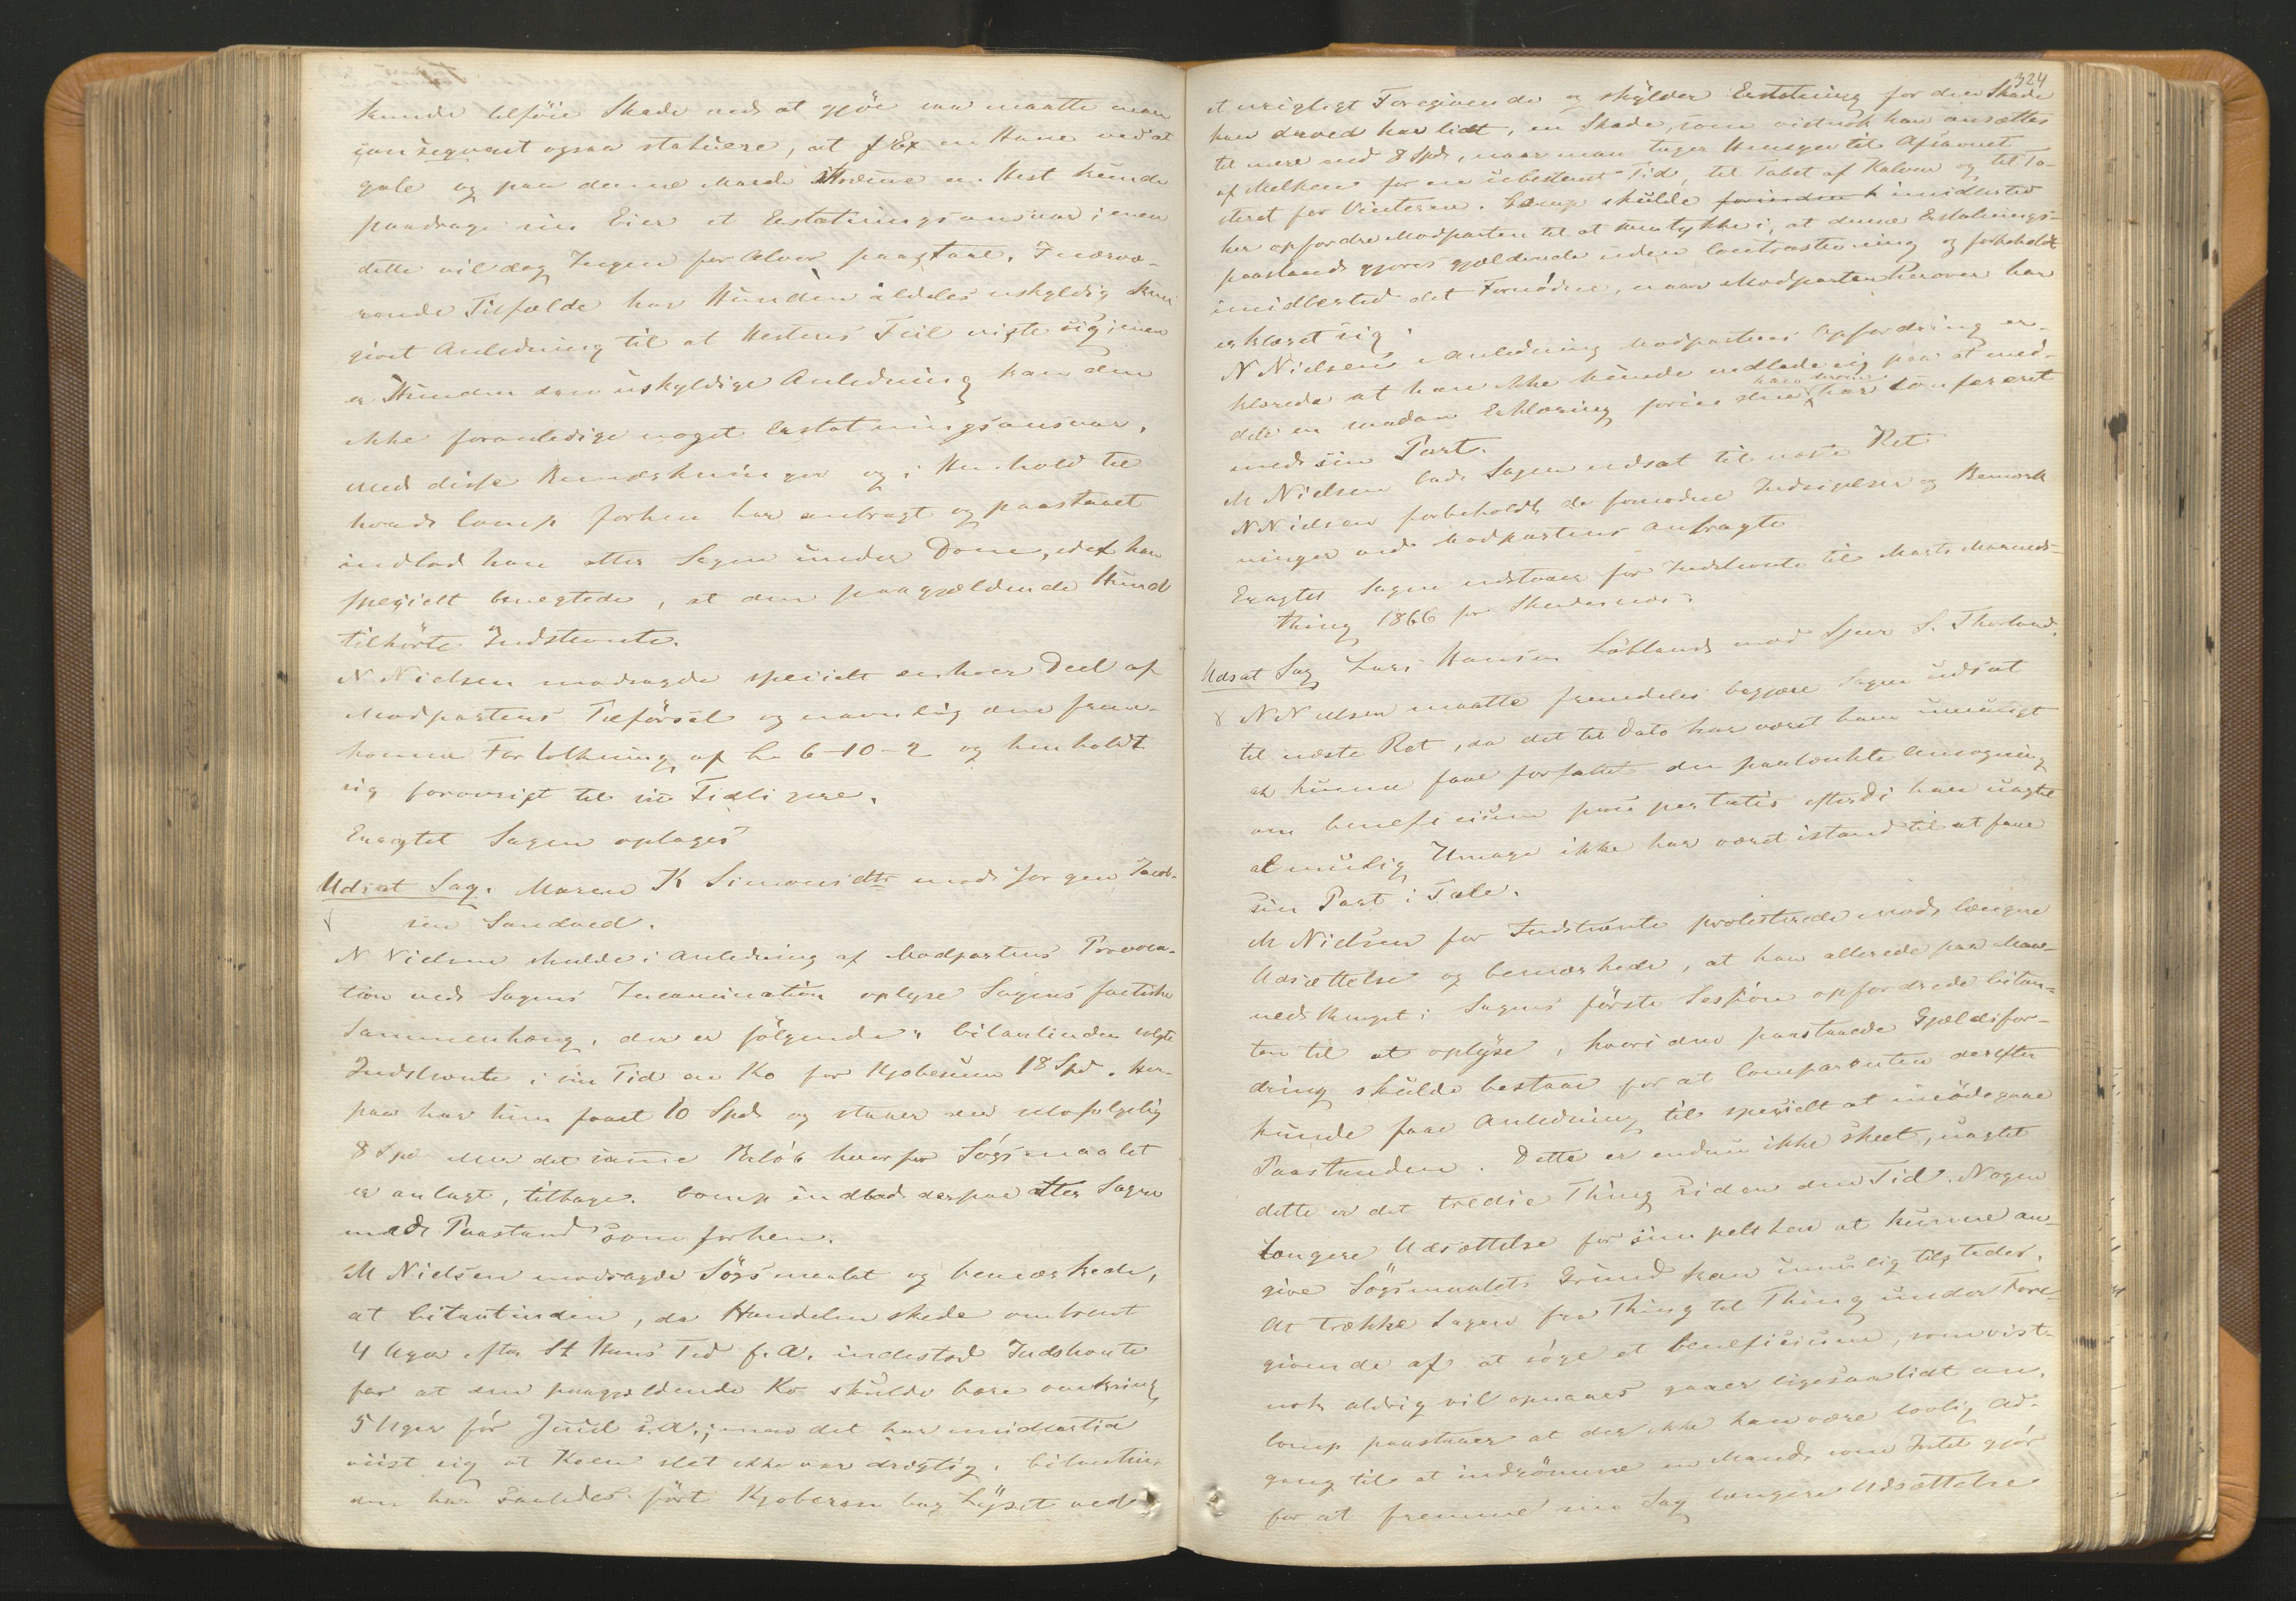 kunde tilføie Skade ved at gjøe saa maatte man
consequent ogsaa statuere, at f Ex en Hane ved at
gale og paa denne Maade skræmme en Hest kunde
paadrage sin Eier et Erstatningsansvar; men
dette vil dog Ingen for Alvor paastaae. I nærvæ-
rende Tilfælde har Hunden aldeles uskyldig kun
givet Anledning til at Hestens Feil viste sig; men
er Hunden den uskyldige Anledning kan den
ikke foranledige noget Erstatningsansvar.
Med disse Bemærkninger og i Henhold til
hvad Comp forhen har anbragt og paastaaet
indlod han atter Sagen under Dom, idet han
specielt benegtede, at den paagjældende Hund
tilhørte Indstevnte.
N Nielsen modsagde specielt enhver Deel af
Modpartens Tilførsel og navnlig den frem-
komne Fortolkning af L 6-10-2 og henholdt
sig forøvrigt til sit Tidligere.
Eragtet Sagen optages
Udsat Sag. Maren K Simonsdtr mod Jørgen Jacob-
sen Sandved.
N Nielsen skulde i Anledning af Modpartens Provoca-
tion ved Sagens Incamination oplyse Sagens factiske
Sammenhæng, der er følgende: Citantinden solgte
Indstevnte i sin Tid en Ko for Kjøbesum 18 Spd. Her-
paa har hun faaet 10 Spd og staaer der altsaa følgelig
8 Spd eller det samme Beløb hvorfor Søgsmaalet
er anlagt, tilbage. Comp indlod derpaa atter Sagen
med Paastand som forhen.
M Nielsen modsagde Søgsmaalet og bemærkede,
at Citantinden, da Handelen skede omtrent
4 Uger efter St Hans Tid f. A. indestod Indstevnte
for at den paagjældende Ko skulde bære omkring
5 Uger før Juul s. A.; men det har imidlertid
viist sig at Koen slet ikke var drægtig. Citantin-
den har saaledes ført Kjøberen bag Lyset ved
324
et urigtigt Foregivende og skylder Erstatning for den Skade
han derved har lidt, en Skade, som vistnok kan ansættes
til mere end 8 Spd, naar man tager Hensyn til Afsavnet
af Melken for en ubestemt Tid, til Tabet af Kalven og til Fo-
steret for Vinteren. Comp skulde forinden h imidlertid
her opfordre Modparten til at samtykke i, at denne Erstatnings-
paastand gjøres gjældende uden Contrastevning og forbeholdt
imidlertid det Fornødne, naar Modparten herover har
erklæret sig.
N Nielsen i Anledning Modpartens Opfordring er-
klærede at han ikke kunde indlade sig paa at med-
dele en saadan Erklæring forinden han derom har confereret
med sin Part.
M Nielsen lod Sagen udsat til næste Ret
N Nielsen forbeholdt de fornødne Indsigelser og Bemærk
ninger ved Modpartens Anbragte
Eragtet Sagen udstaaer for Indstevnte til Marts Maaneds-
thing 1866 for Skudesnæs.
Udsat Sag Lars Hansen Løkland mod Sjur S. Thorland.
N Nielsen maatte fremdeles begjære Sagen udsat
til næste Ret, da det til Dato har været ham umuligt
at kunne faae forfattet den paatænkte Ansøgning
om beneficium paupertatis efterdi han uagtet
al mulig Umage ikke har været istand til at faae
sin Part i Tale.
M Nielsen for Indstevnte protesterede mod længere
Udsættelse og bemærkede, at han allerede paa Maa-
nedsthinget i Sagens første Session opfordrede Citan-
ten til at oplyse, hvori den paastaaede Gjældsfor-
dring skulde bestaae for at Comparenten derefter
kunde faae Anledning til specielt at imødegaae
Paastanden. Dette er endnu ikke skeet, uagtet
dette er det tredie Thing siden den Tid. Nogen
længere Udsættelse for simpelthen at kunne an-
give Søgsmaalets Grund kan umulig tilstedes.
At trække Sagen fra Thing til Thing under Fore-
givende af at søge et beneficium, som vist-
nok aldrig vil opnaaes gaaer ligesaa lidt an.
Comp paastaaer at der ikke kan være lovlig Ad-
gang til at indrømme en Mand som Intet gjør
for at fremme sin Sag længere Udsættelse